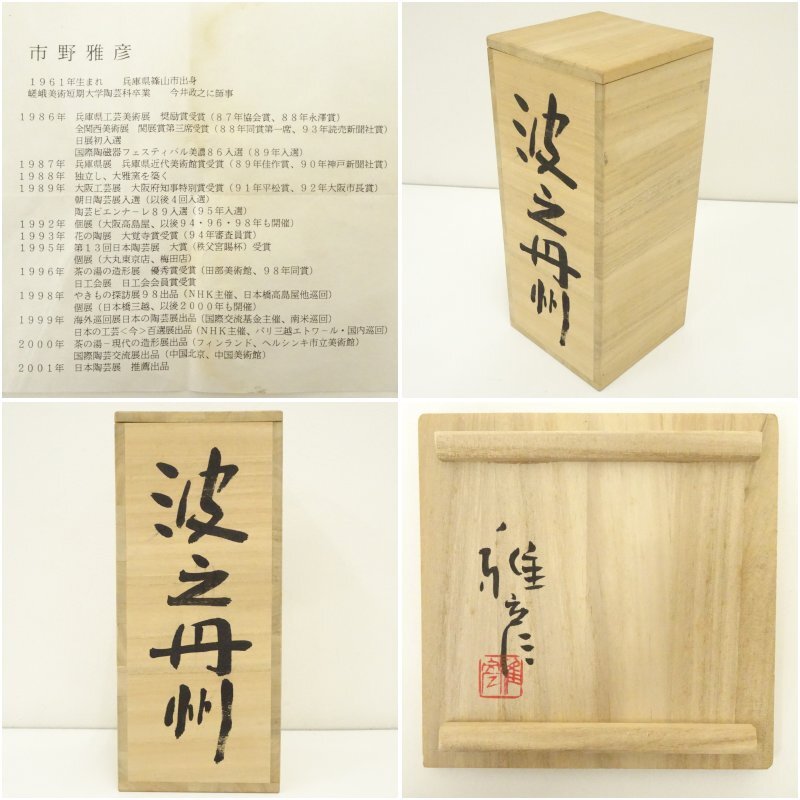 市野雅彦
1961年生まれ　兵庫県篠山市出身
嵯峨美術短期大学陶芸科卒業　今井政之に師事
1986年　兵庫県工芸美術展　奨励賞受賞(87年協会賞、88年永澤賞)
全関西美術展　関展賞第三席受賞(88年同賞第一席、93年読売新聞社賞)
日展初入選
国際陶磁器フェスティバル美濃86入選(89年入選)
1987年　兵庫県展　兵庫県近代美術館賞受賞(89年佳作賞、90年神戸新聞社賞)
1988年　独立し、大雅窯を築く
1989年　大阪工芸展　大阪府知事特別賞受賞(91年平松賞、92年大阪市長賞)
朝日陶芸展入選(以後4回入選)
陶芸ビエンナーレ89入選(95年入選)
1992年　個展(大阪高島屋、以後94・96・98年も開催)
1993年　花の陶展　大覚寺賞受賞(94年審査員賞)
1995年　第13回日本陶芸展　大賞(秩父宮賜杯)受賞
個展(大丸東京店、梅田店)
1996年　茶の湯の造形展　優秀賞受賞(田部美術館、98年同賞)
日工会展　日工会会員賞受賞
1998年　やきもの探訪展98出品(NHK主催、日本橋高島屋他巡回)
個展(日本橋三越、以後2000年も開催)
1999年　海外巡回展日本の陶芸展出品(国際交流基金主催、南米巡回)
日本の工芸<今>百選展出品(NHK主催、パリ三越エトワール・国内巡回)
2000年　茶の湯－現代の造形展出品(フィンランド、ヘルシンキ市立美術館)
国際陶芸交流展出品(中国北京、中国美術館)
2001年　日本陶芸展　推薦出品
波之丹州
波之丹州
雅彦